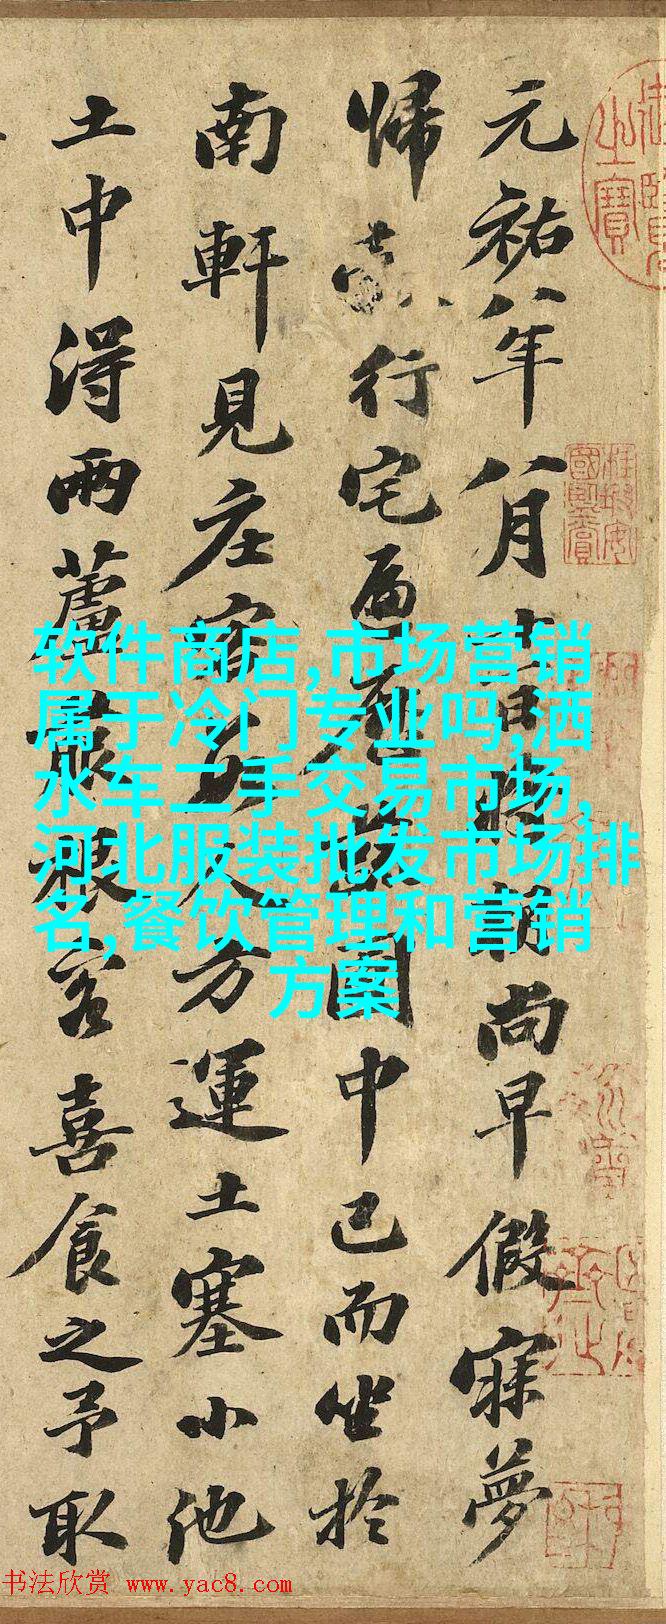 元祐八年八月十一日將朝尚早假寐夢
歸行宅遍歷蔬園中已而坐於
南軒見庄客數人方運土塞小池
土中得兩蘆菔根客喜食之予取
软件商店,市场营销
属于冷门专业吗,洒
水车二手交易市场,
河北服装批发市场排
名,餐饮管理和营销
方案
书法欣赏 www.yac8.com